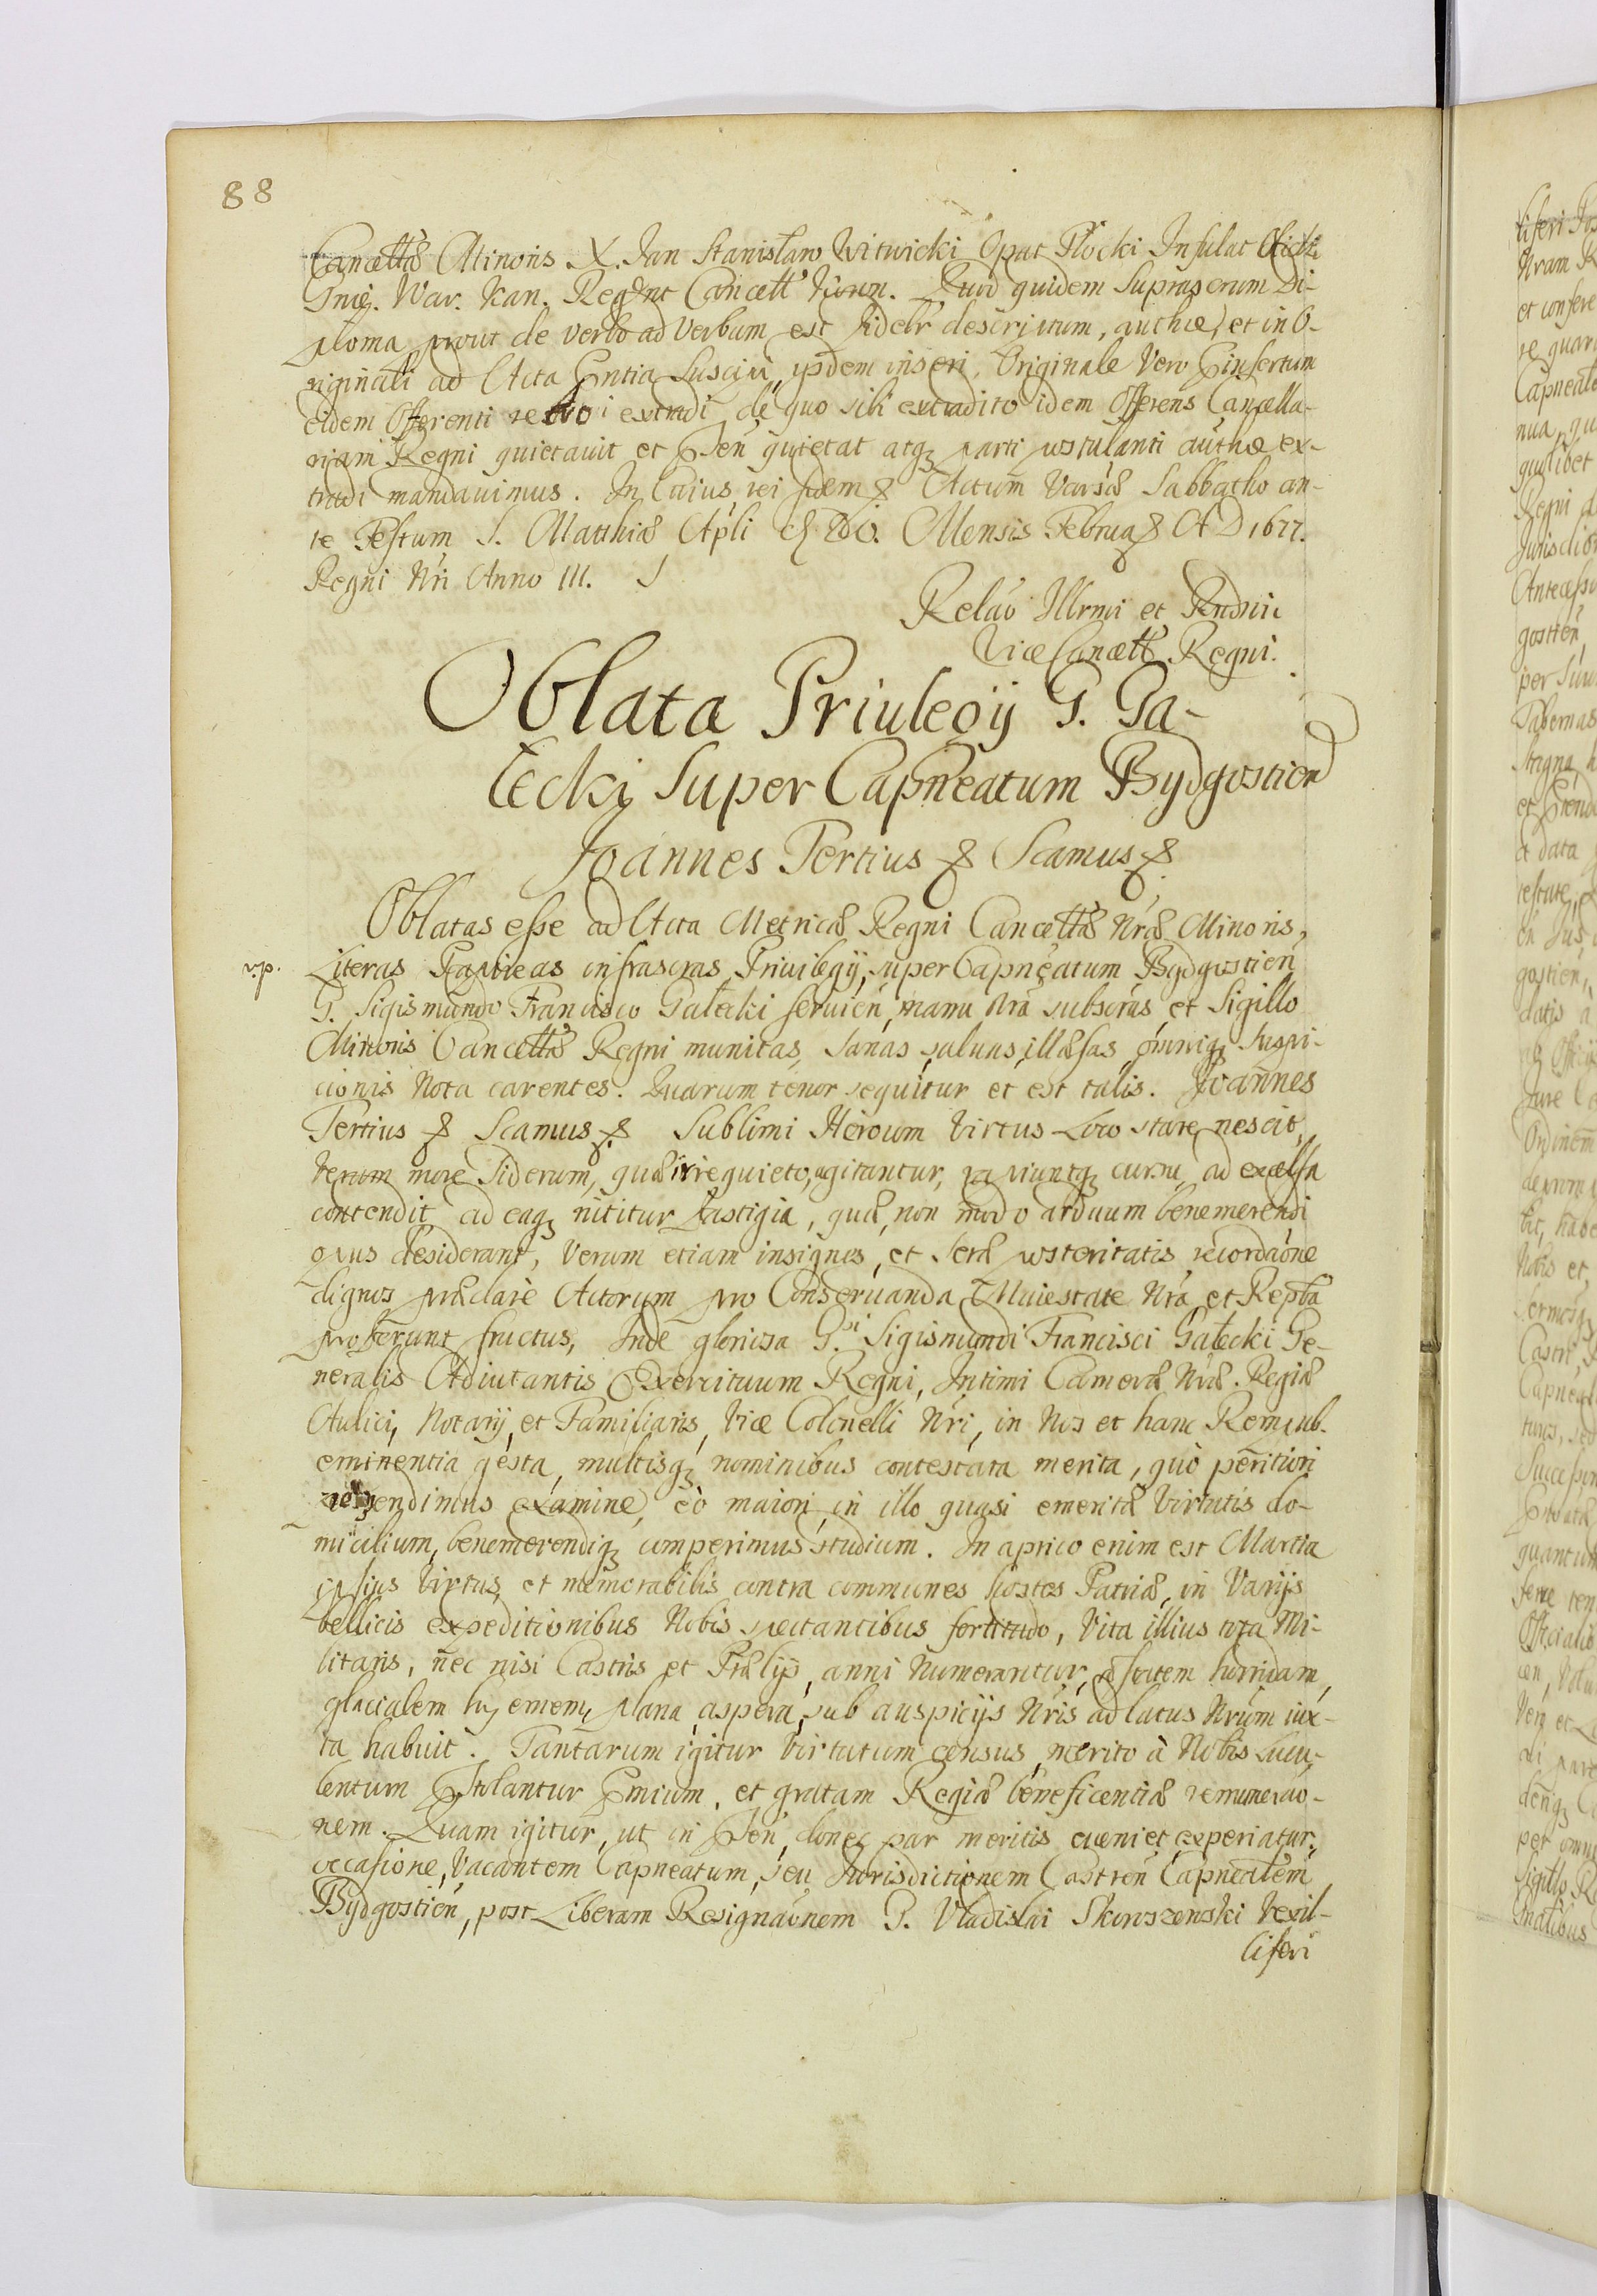 88
Cancellae Minoris X. Jan Stanisław Witwicki Opat Płocki Infułat
Gnie. War. Kan. Regent Cancell Koron. Quod quidem Suprascrum Di-
ploma prout de verbo ad Verbum est fideltr descriptum, authce, et in O-
riginali ad Acta Pntia Suscipi, ijsdem inseri, Originale Vero Pinsertum
eidem Offerenti extradi, de quo sibi extradito idem Offerens Cancella-
riam Regni quietavit et Pden quietat atq parti postulanti authce ex-
tradi mandavimus. In Cuius rei fidem & Actum Varsae Sabbatho an-
te Festum S. Matthiae Apli Mensis Februar A D 1677.
Regni Nri Anno III.
Relaō Illrmi et Rndmi
Vice Cancell Regni.
Oblata Priulegij G. Ga-
łecki Super Capneatum Bydgostien
Joannes Tertius & Scamus &
Oblatas esse ad Acta Metricae Regni Cancellae Nrae Minoris,
v.p. Literas Papireas infrascras Priuilegij, super Capneatum Bydgostien
G. Sigismundo Francisco Gałecki seruien, manu Nra subscras, et Sigillo
Minoris Cancellae Regni munitas, sanas saluas, illaesas, omniq Suspi-
cionis Nota carentes. Quarum tenor sequitur et est talis. Joannes
Tertius & Scamus & Sublimi Heroum Virtus Loco stare nescit,
Verum more Siderum, quae irrequieto, agitantur, cursu, ad excelsa
contendit, ad eaq nititur fastigia, quae, non modo arduum benemerendi
opus desiderant, Verum etiam insignes, et Serae posteritatis recordaōne
dignos praeclare Actorum pro Conseruanda Maiestate Nra, et Repbca
proferunt fructus, Inde gloriosa G.si Sigismundi Francisci Gałecki Ge-
neralis Adiutantis Exercituum Regni, Intimi Camerae Nrae Regiae
Aulici, Notarij, et Familiaris, Vice Colonelli Nri, in Nos et hanc Rempub.
eminentia gesta, multisq nominibus contestata merita, quò peritiori
rependimus examine, eò maiori, in illo quasi emeritae Virtutis do-
micilium, benemerendiq comperimus studium. In aprico enim est Martia
ipsius Virtus, et memorabilis contra communes hostes Patriae, in Varijs
bellicis expeditionibus Nobis spectantibus fortitudo, Vita illius tota Mi-
litaris, nec nisi Castris et Praelijs, anni Numerantur, aestatem horridam,
glacialem hyemem, plana, aspera, sub auspicijs Nris ad latus Nrum iux-
ta habuit. Tantarum igitur Virtutum census, merito à Nobis Lucu-
lentum Pstolantur Pmium, et gratam Regiae beneficentiae remuneraō-
nem. Quam igitur, ut in Pden, donec par meritis eueniet, experiatur,
occasione, Vacantem Capneatum, seu Jurisdictionem Castren Capnealem
Bydgostien, post Liberam Resignaōnem G. Vladislai Skoroszewski Vexil-
liferi